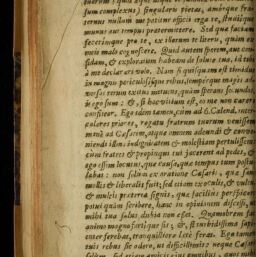 sum complexus) singularis pietas, amórque fra-
ternus nullum me patitur officij erga te, studiíque
munus aut tempus praetermittere. Sed quae faciam,
fecerímque pro te, ex illorum te literis, quàm ex
meis malo cognoscere. Quid autem sperem, aut con-
fidam, & exploratum habeam de salute tua, id tibi
à me declarari volo. Nam si quisquam est timidus
in magnis periculosísque rebus, sempérque magis ad-
versos rerum exitus metuens, quàm sperans secundos,
is ego sum: &, si hoc vitium est, eo me non carere
confiteor. Ego idem tamen, cùm ad v. Calend. inter-
calares priores, rogatu fratrum tuorum venissem
manè ad Caesarem, atque omnem adeundi & conve-
niendi illius indignitatem & molestiam pertulissem:
cùm fratres & propinqui tui iacerent ad pedes, &
ego essem locutus, quae causa, quae tempus tuum postu-
labat: non solùm ex oratione Caesaris, quae sanè
mollis & liberalis fuit, sed etiam ex oculis, & vultu,
& multis praeterea signis, quae faciliùs perspicere
potui quàm scribere, hac in opinione discessi, ut
mihi tua salus dubia non esset. Quamobrem fac
animo magno fortíque sis: &, si turbidissima sapi-
enter ferebas, tranquilliora laetè feras. Ego tamen
tuis rebus sic adero, ut difficillimis: neque Caesari